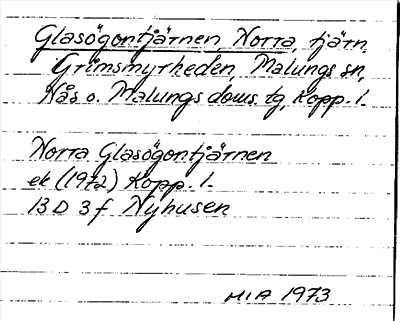 Glasögontjärnen, Norra, tjärn,
Grimsmyrheden, Malungs sn,
Nås o. Malungs doms. tg, Kopp. l.
Norra Glasögontjärnen
ek (1972) Kopp. l.
13 D 3 f Nyhusen
MIA 1973